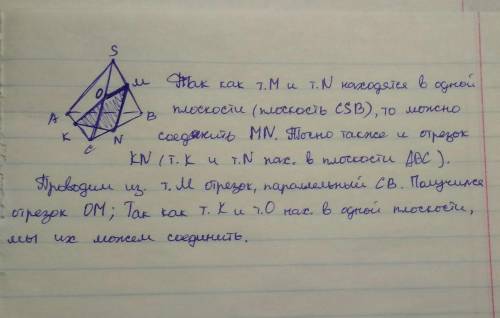 S
O
M
A
B
K
C
N
Так как т.M и т.N находятся в одной
плоскости (плоскость CSB), то можно
соединить MN. Точно также и отрезок
KN (т. K и т.N нах. в плоскости ABC).
Проводим из т. M отрезок, параллельный CB. Получился
отрезок OM; Так как т. K и т.O нах. в одной плоскости,
мы их можем соединить.